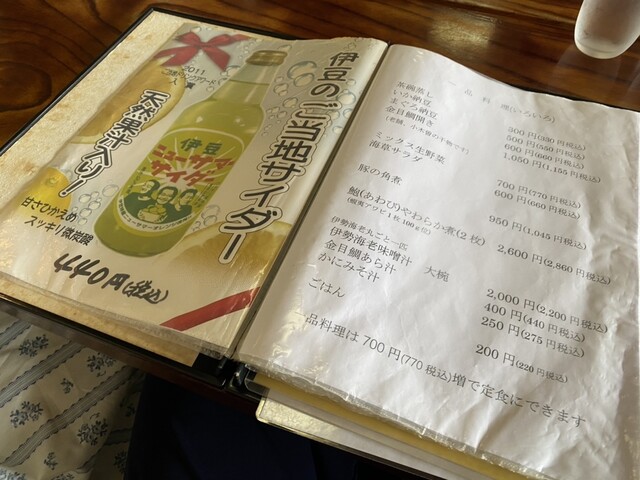 伊豆のご当地サイダー
2011
天然果汁入り！
伊豆
サイダー
甘さひかえめ
スッキリ微炭酸
440円(税込)
一品料理(いろいろ)
茶碗蒸し 300円(330円税込)
いか納豆 500円(550円税込)
まぐろ納豆 600円(660円税込)
金目鯛開き 1,050円(1,155円税込)
ミックス生野菜 700円(770円税込)
海草サラダ 600円(660円税込)
豚の角煮 950円(1,045円税込)
鮑(あわび)やわらか煮(2枚) 2,600円(2,860円税込)
(蝦夷アワビ1枚100g位)
伊勢海老丸ごと一匹
伊勢海老味噌汁 大椀 2,000円(2,200円税込)
金目鯛あら汁 400円(440円税込)
かにみそ汁 250円(275円税込)
ごはん 200円(220円税込)
一品料理は700円(770税込)増で定食にできます